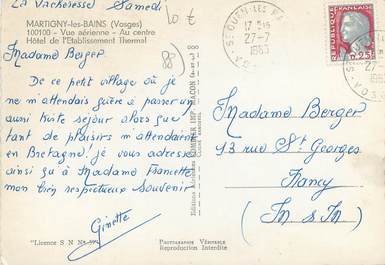 La Vacheresse Samedi
MARTIGNY-les-BAINS (Vosges)
100100 - Vue aérienne - Au centre
Hôtel de l'Etablissement Thermal
10 €
88
Madame Berger
De ce petit village où je
ne m'attendais guère à passer un
aussi triste séjour alors que
tant de plaisirs m'attendaient
en Bretagne! je vous adresse
ainsi qu'à Madame Francette
mon bien respectueux souvenir
Ginette
"Licence S N
Photographie Véritable
Reproduction Interdite
COMBIER IMP. MACON
ST OUEN-LES-PA
17 H 15
27-7
1963
REPUBLIQUE FRANÇAISE
0,25
Madame Berger
13 rue St Georges
Nancy
(M & M)